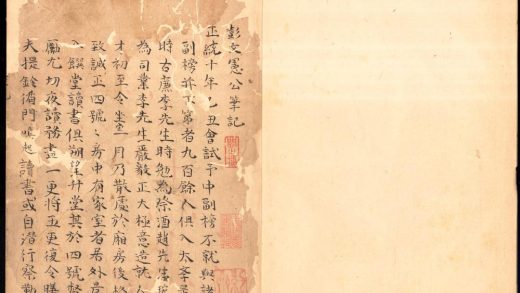 彭文憲公筆記
正統十年乙丑會試予中副榜不就與諸
副榜并下第者九百餘人俱入太李是
時古廉李先生時勉為祭酒趙先生琬
為司業李先生嚴毅正大極意造就人
才初至令坐堂一月乃散處於廂房後
致誠正四號號房中有家室者居外是
饌堂讀書俱朔望升堂其於四號
勵尤切夜讀務盡一更將五更復令膳
夫提鈴循門喚起讀書或自潛行察勤